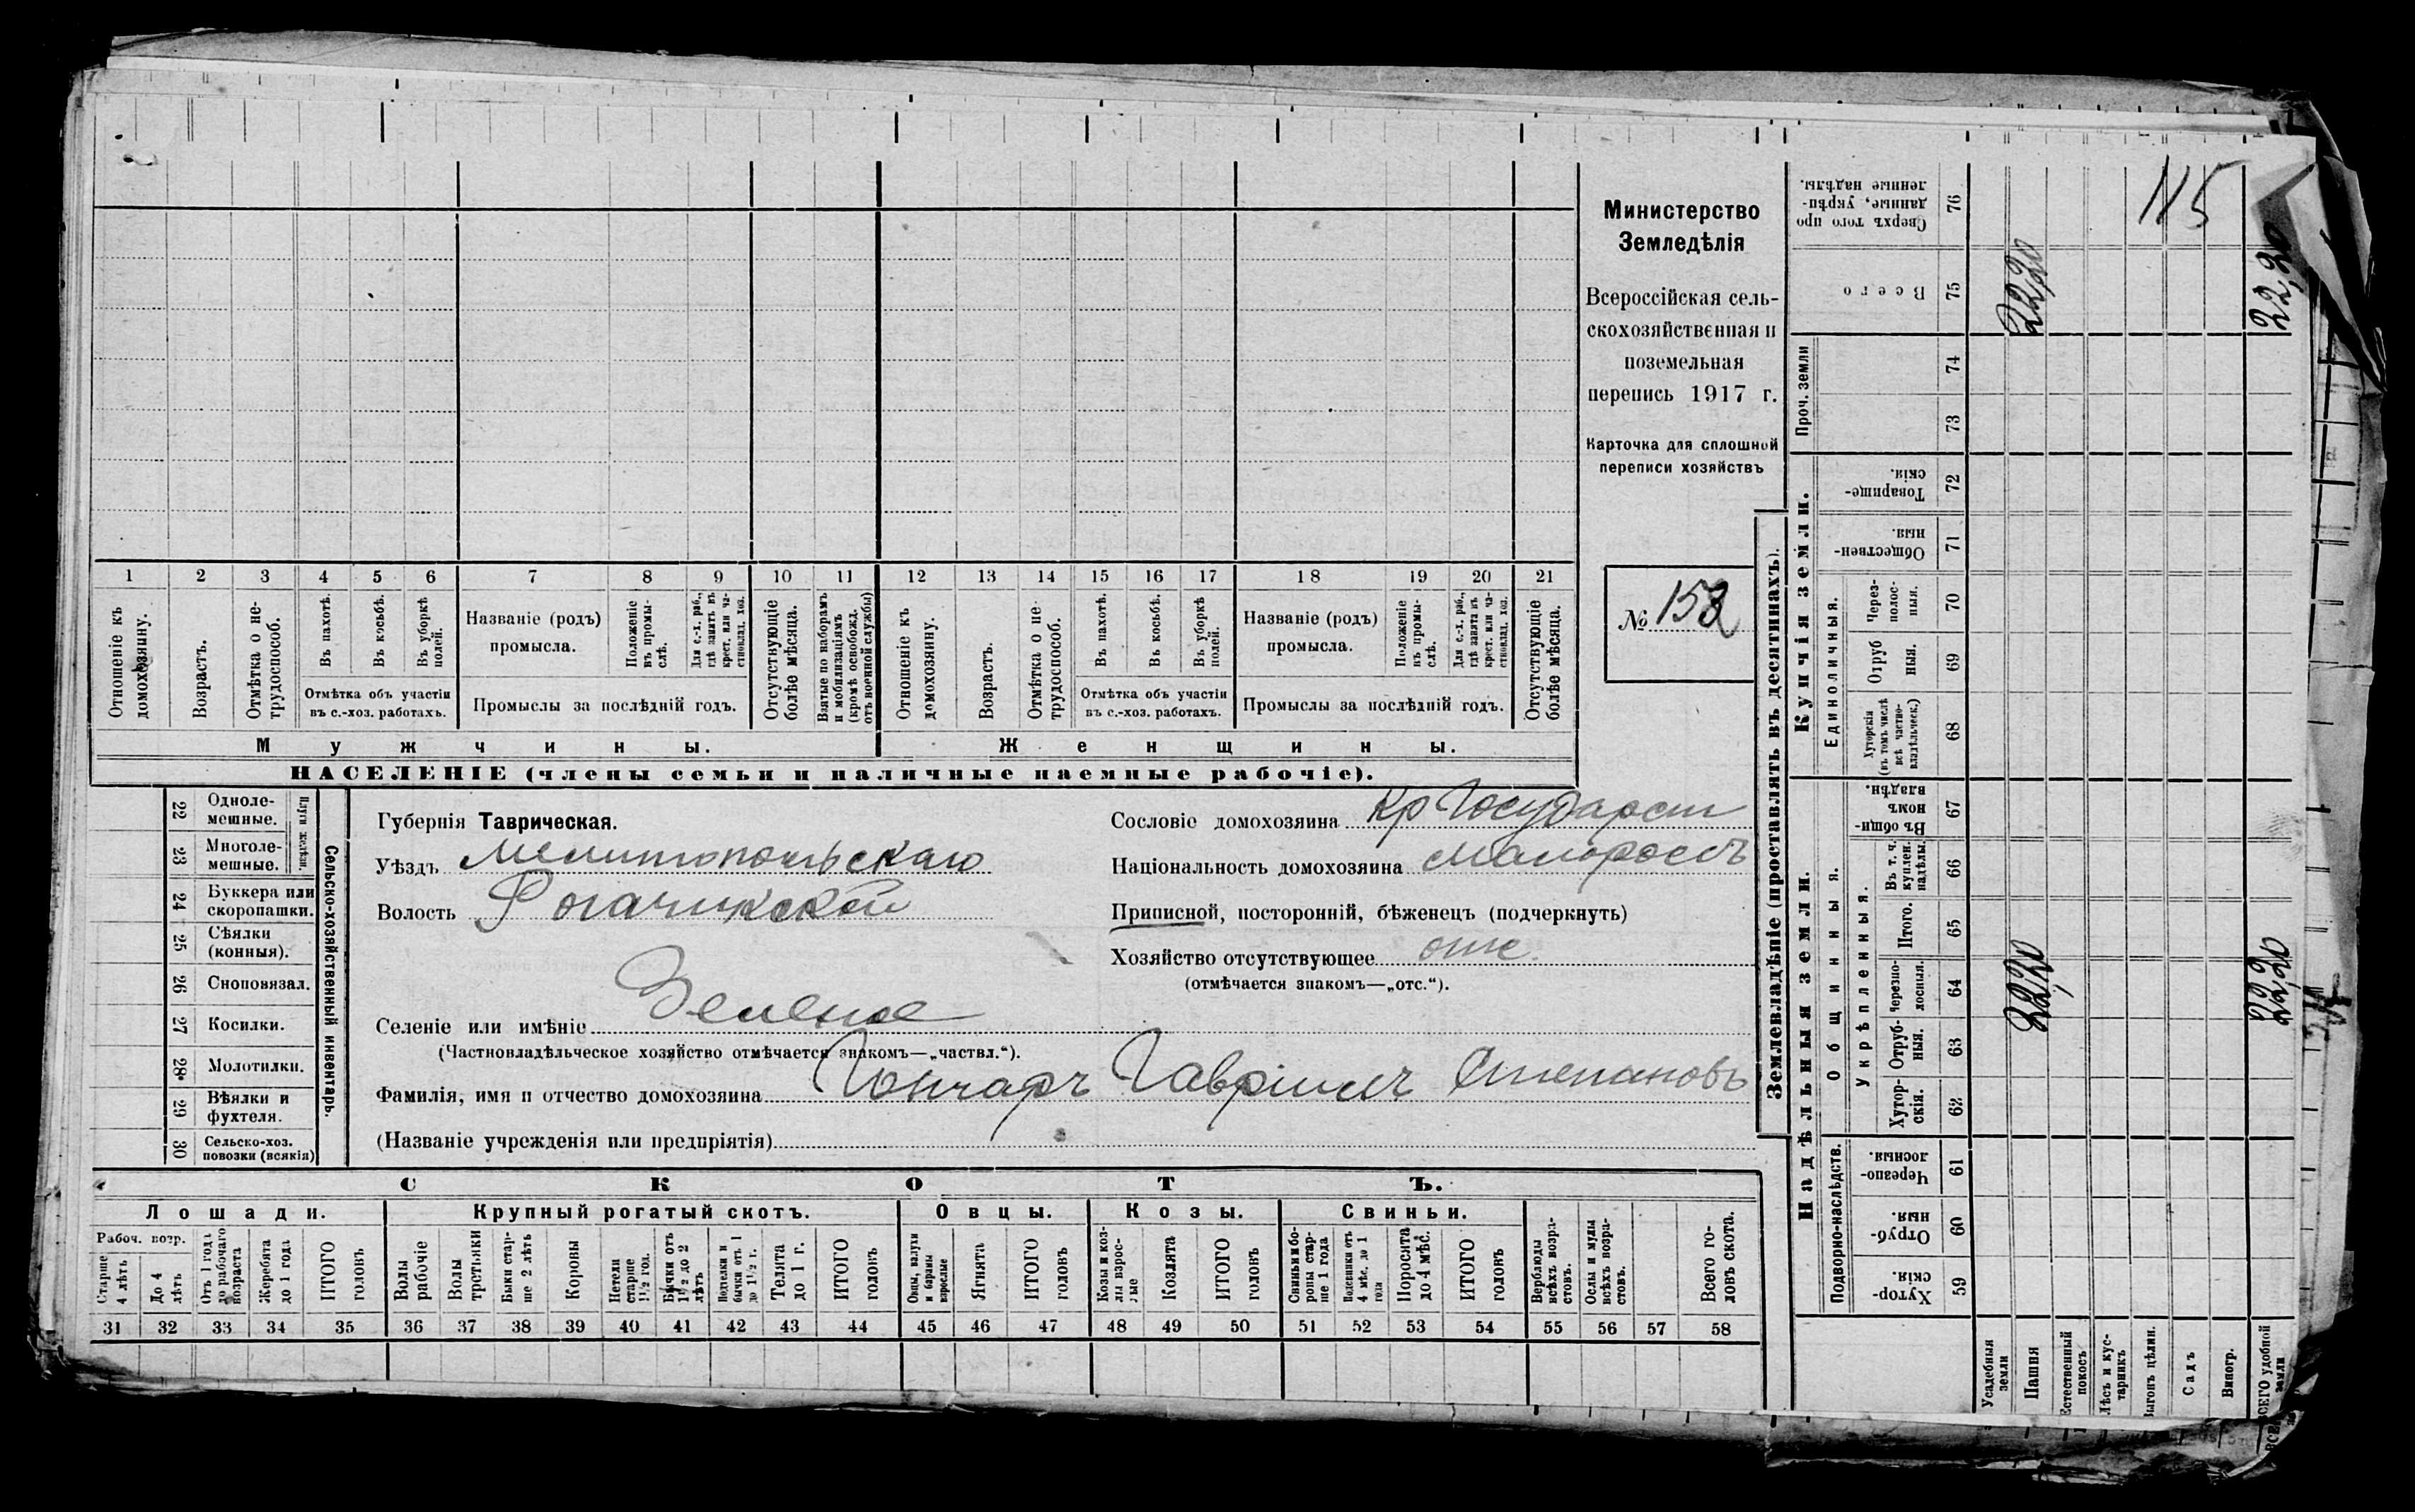 Министерство
Земледѣлія
Всероссійская сель-
скохозяйственная и
поземельная
перепись 1917 г.
Карточка для сплошной
переписи хозяйствъ
№ 153
1 2 3 4 5 6 7 8 9 10 11 12 13 14 15 16 17 18 19 20 21
Отношеніе къ домохозяину.
Возрастъ.
Отмѣтка о не-трудоспособ.
Въ пахотѣ.
Въ косьбѣ.
Въ уборкѣ полей.
Отмѣтка объ участіи въ с.-хоз. работахъ.
Названіе (родъ) промысла.
Положеніе въ промы-слѣ.
Для с.-х. раб., гдѣ занятъ въ крест. или ча-стновлад. хоз.
Промыслы за послѣдній годъ.
Отсутствующіе болѣе мѣсяца.
Взятые по наборамъ и мобилизаціямъ (кромѣ освобожд. отъ военной службы)
Отношеніе къ домохозяину.
Возрастъ.
Отмѣтка о не-трудоспособ.
Въ пахотѣ.
Въ косьбѣ.
Въ уборкѣ полей.
Отмѣтка объ участіи въ с.-хоз. работахъ.
Названіе (родъ) промысла.
Положеніе въ промы-слѣ.
Для с.-х. раб., гдѣ занята въ крест. или ча-стновлад. хоз.
Промыслы за послѣдній годъ.
Отсутствующіе болѣе мѣсяца.
Мужчины.
Женщины.
НАСЕЛЕНІЕ (члены семьи и наличные наемные рабочіе).
22 Одноле-мешные.
23 Многоле-мешные.
Плуги желѣзн.
24 Буккера или скоропашки.
25 Сѣялки (конныя).
26 Сноповязал.
27 Косилки.
28 Молотилки.
29 Вѣялки и фухтеля.
30 Сельско-хоз. повозки (всякія)
Сельско-хозяйственный инвентарь.
Губернія Таврическая.
Уѣздъ Мелитопольскаго
Волость Рогачикской
Селеніе или имѣніе Зеленое
(Частновладѣльческое хозяйство отмѣчается знакомъ—„частвл.“).
Фамилія, имя и отчество домохозяина Гончаръ Гавріилъ Степановъ
(Названіе учрежденія или предпріятія)
Сословіе домохозяина Кр Государст
Національность домохозяина Малороссъ
Приписной, посторонній, бѣженецъ (подчеркнуть)
Хозяйство отсутствующее отс.
(отмѣчается знакомъ—„отс.“).
СКОТЪ.
Лошади.
Крупный рогатый скотъ.
Овцы.
Козы.
Свиньи.
Рабоч. возр.
Старше 4 лѣтъ
До 4 лѣтъ
Отъ 1 года до рабочаго возраста
Жеребята до 1 года
ИТОГО головъ
Волы рабочіе
Волы третьяки
Быки стар-ше 2 лѣтъ
Коровы
Нетели старше 1½ год.
Бычки отъ 1½ до 2 лѣтъ
Подтелки и бычки отъ 1 до 1½ г.
Телята до 1 г.
ИТОГО головъ
Овцы, валухи и бараны взрослые
Ягнята
ИТОГО головъ
Козы и коз-лы взрос-лые
Козлята
ИТОГО головъ
Свиньи и бо-ровы стар-ше 1 года
Подсвинки отъ 4 мѣс. до 1 года
Поросята до 4 мѣс.
ИТОГО головъ
Верблюды всѣхъ возра-стовъ.
Ослы и мулы всѣхъ возра-стовъ.
Всего го-ловъ скота.
31 32 33 34 35 36 37 38 39 40 41 42 43 44 45 46 47 48 49 50 51 52 53 54 55 56 57 58
Землевладѣніе (проставлять въ десятинахъ).
Надѣльныя земли.
Подворно-наслѣдств.
Хутор-скія. 59
Отруб-ныя. 60
Черезпо-лосныя. 61
Общинныя.
Укрѣпленныя.
Хутор-скія. 62
Отруб-ныя. 63
Черезпо-лосныя. 64
Итого. 65
Въ т. ч. куплен. надѣлы. 66
Въ общи-номъ владѣн. 67
Купчія земли.
Единоличныя.
Хуторскія (въ томъ числѣ всѣ частно-владѣльческ.) 68
Отруб ныя. 69
Через-полос-ныя. 70
Обществен-ныя. 71
Товарище-скія. 72
Проч. земли
73 74
Всего 75
Сверхъ того про данные, укрѣп-ленные надѣлы. 76
Усадебныя земли
Пашня
22,20
22,20
Естественный покосъ
Лѣсъ и кус-тарникъ
Выгонъ цѣлин.
Садъ
Виногр.
ВСЕГО удобной земли
22,20
22,20
115